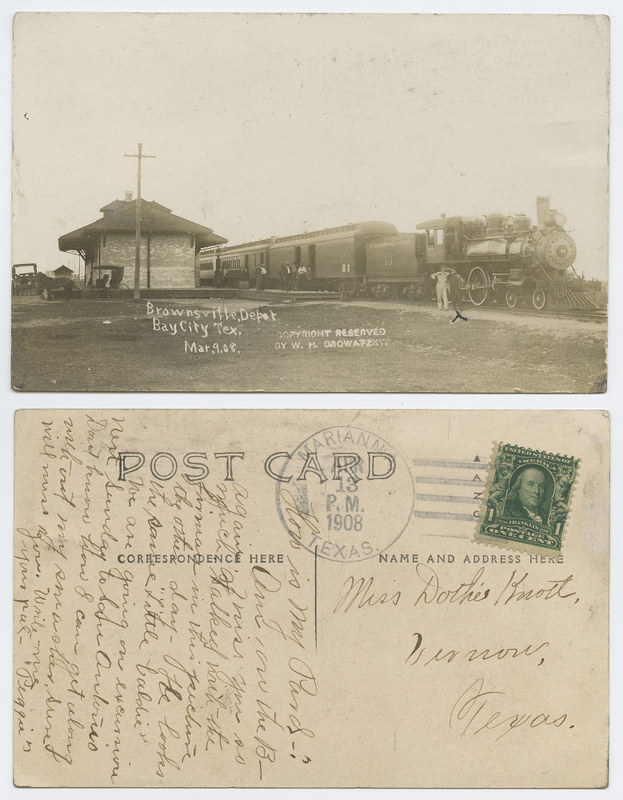 Brownsville, Depot
Bay City Tex.
Mar, 9, 08.
COPYRIGHT RESERVED
BY W. H. BROWATZKY.
13
x
POST CARD
CORRESPONDENCE HERE
NAME AND ADDRESS HERE
MARIANN
13
P.M.
1908
TEXAS.
UNITED STATES OF
AMERICA
FRANKLIN
POSTAGE
ONE CENT
1
Miss Dothie Knott,
Vernon,
Texas.
How is My Pard-?
Am on the B-
again & miss you so
much. I talked with the
farmer in this picture
the other day - He looks
the same little Eddie
We are going on excursion
next Sunday to San Antonio
Don't know how I can get along
without my
will miss you. Write me
your pal - Peggie